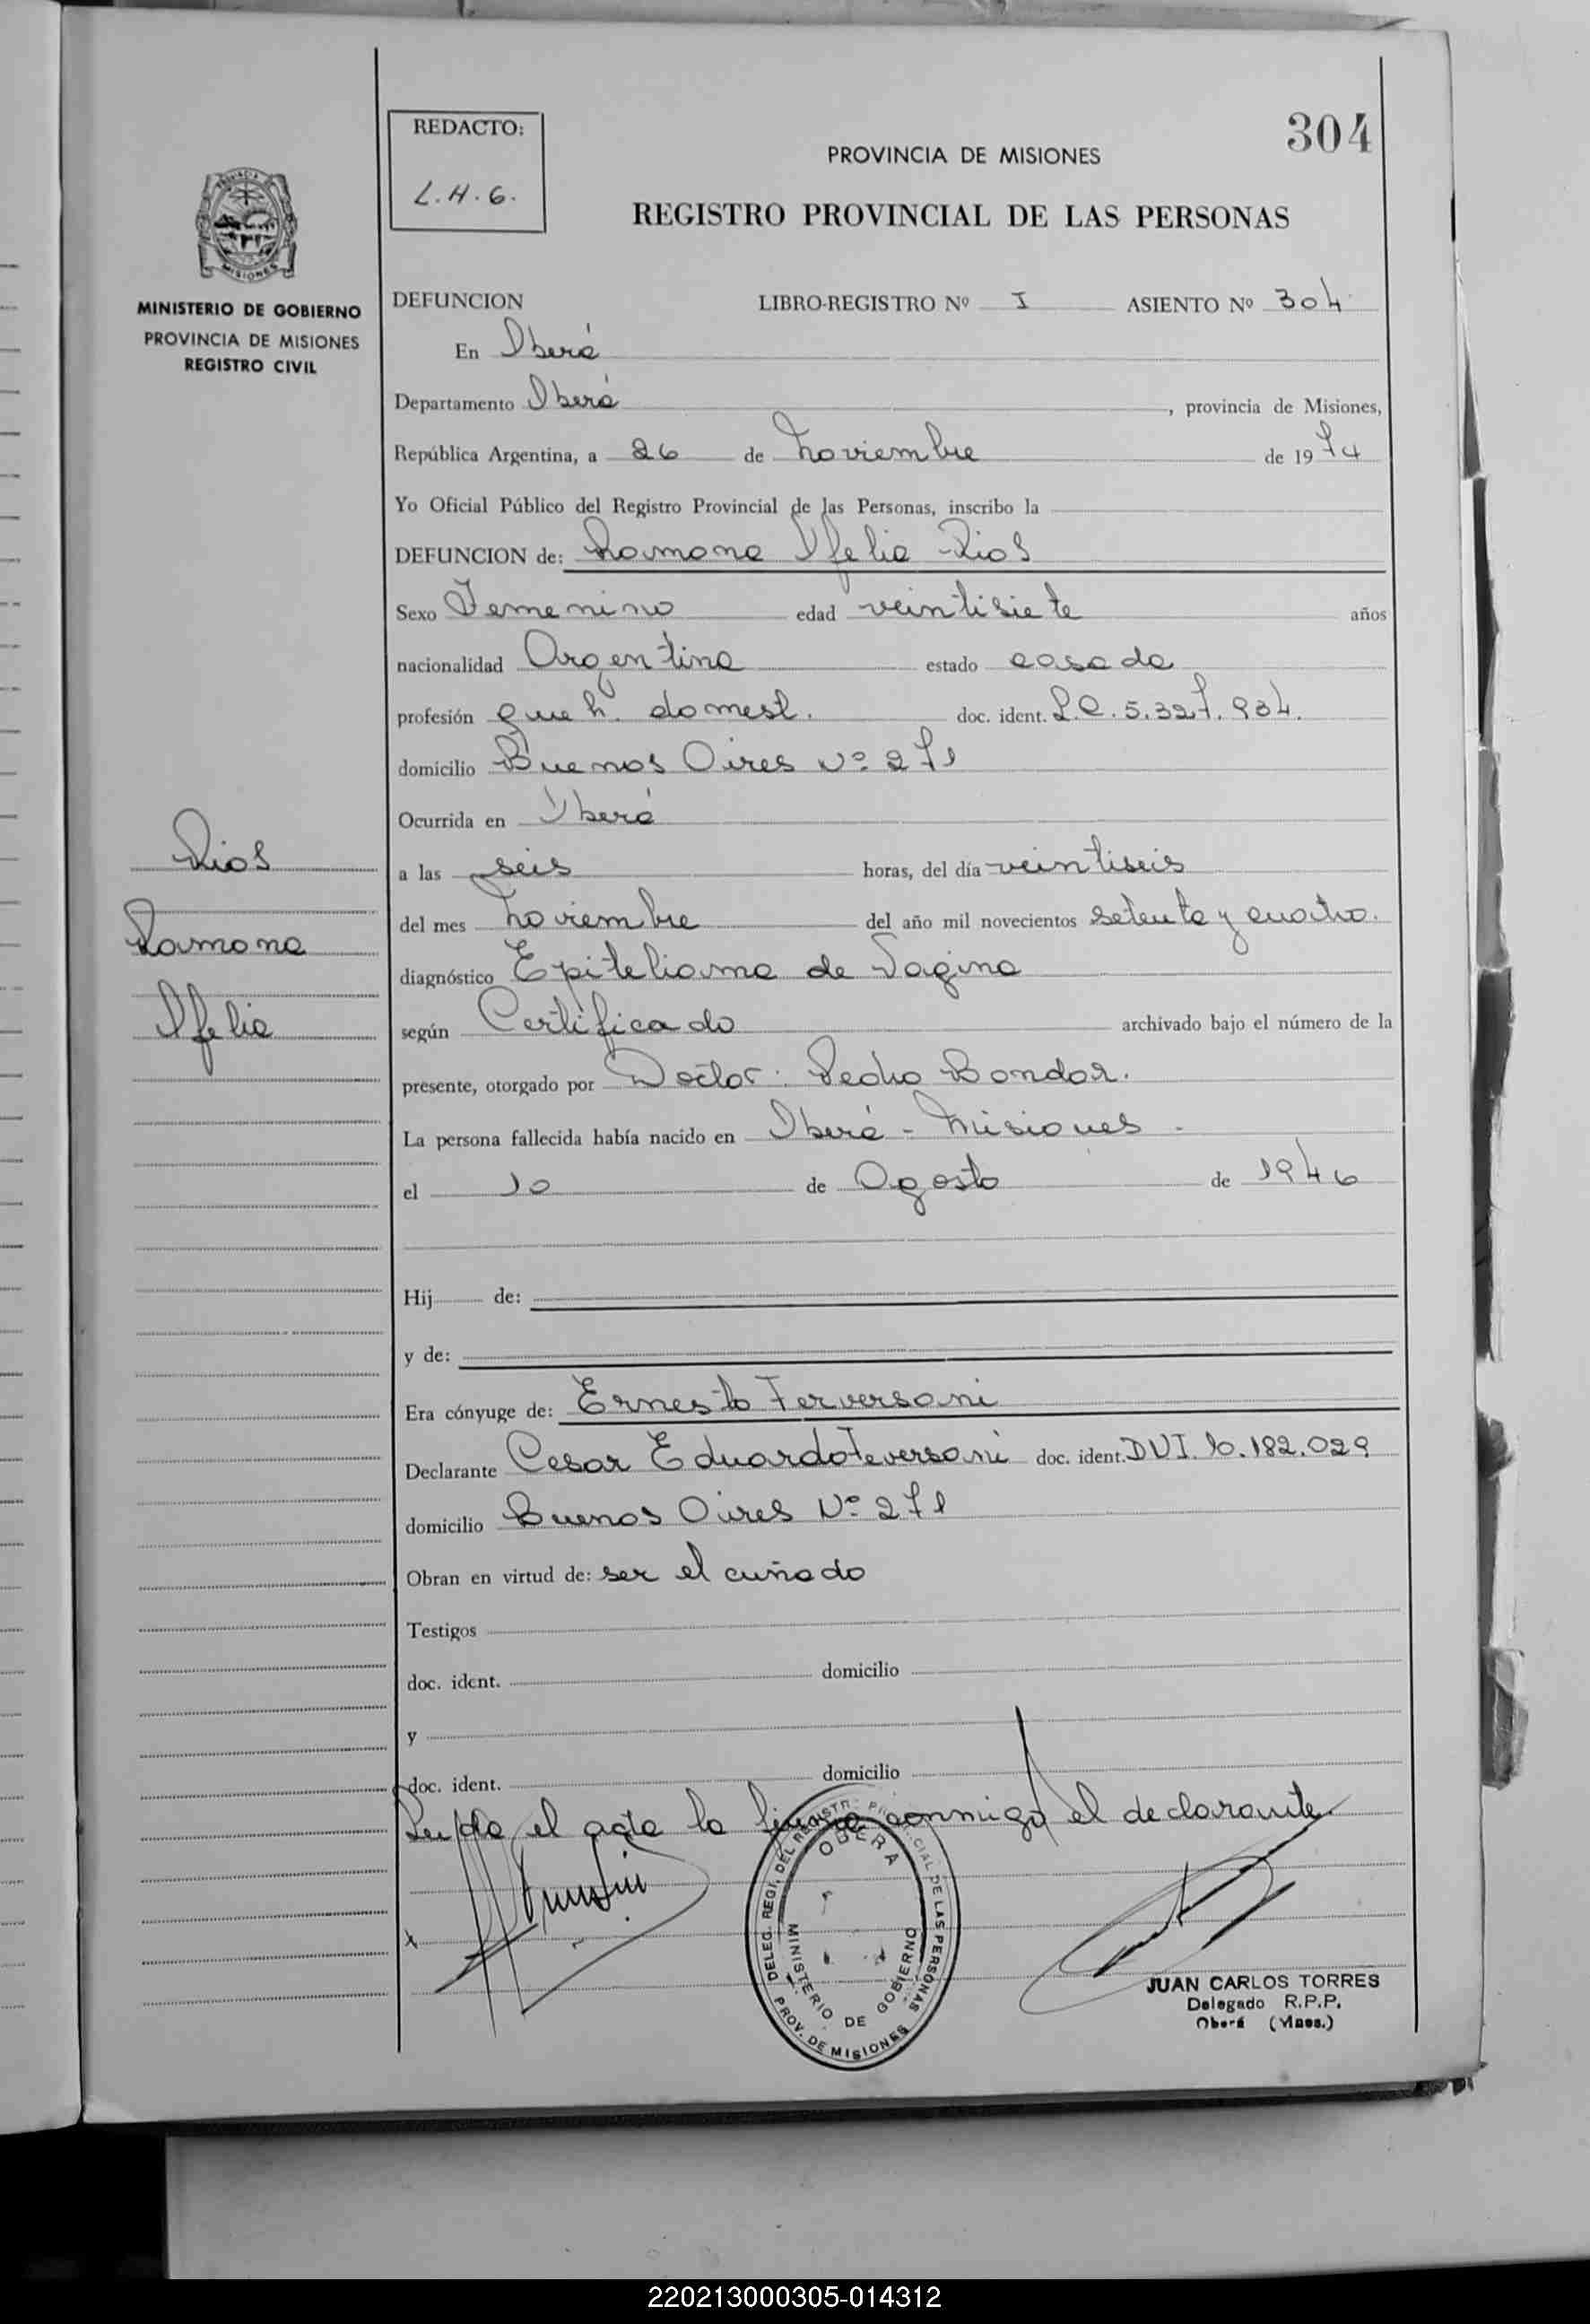 304
REDACTO:
L.H.G.
PROVINCIA DE MISIONES
REGISTRO PROVINCIAL DE LAS PERSONAS
MINISTERIO DE GOBIERNO
PROVINCIA DE MISIONES
REGISTRO CIVIL
DEFUNCION LIBRO-REGISTRO Nº I ASIENTO Nº 304
En Oberá
Departamento Oberá, provincia de Misiones,
República Argentina, a 26 de Noviembre de 1974
Yo Oficial Público del Registro Provincial de las Personas, inscribo la
DEFUNCION de: Ramona Ofelia Rios
Sexo Femenino edad veintisiete años
nacionalidad Argentina estado casada
profesión queh. domest. doc. ident. L.C. 5.327.934.
domicilio Buenos Aires Nº 271
Ocurrida en Oberá
a las seis horas, del día veintiseis
del mes Noviembre del año mil novecientos setenta y cuatro.
diagnóstico Epitelioma de Vagina
según Certificado archivado bajo el número de la
presente, otorgado por Doctor: Pedro Bondar.
La persona fallecida había nacido en Oberá - Misiones -
el 10 de Agosto de 1946
Hij de:
y de:
Era cónyuge de: Ernesto Ferversani
Declarante Cesar Eduardo Teversani doc. ident. DUI. 10.182.029
domicilio Buenos Aires Nº 271
Obran en virtud de: ser el cuñado
Testigos
doc. ident. domicilio
y
doc. ident. domicilio
Leida el acta la firma conmigo el declarante
Rios
Ramona
Ofelia
x
DELEG. REGI. DEL REGISTR. PROVINCIAL DE LAS PERSONAS
OBERA
MINISTERIO DE GOBIERNO
PROV. DE MISIONES
JUAN CARLOS TORRES
Delegado R.P.P.
Oberá (Mnes.)
220213000305-014312